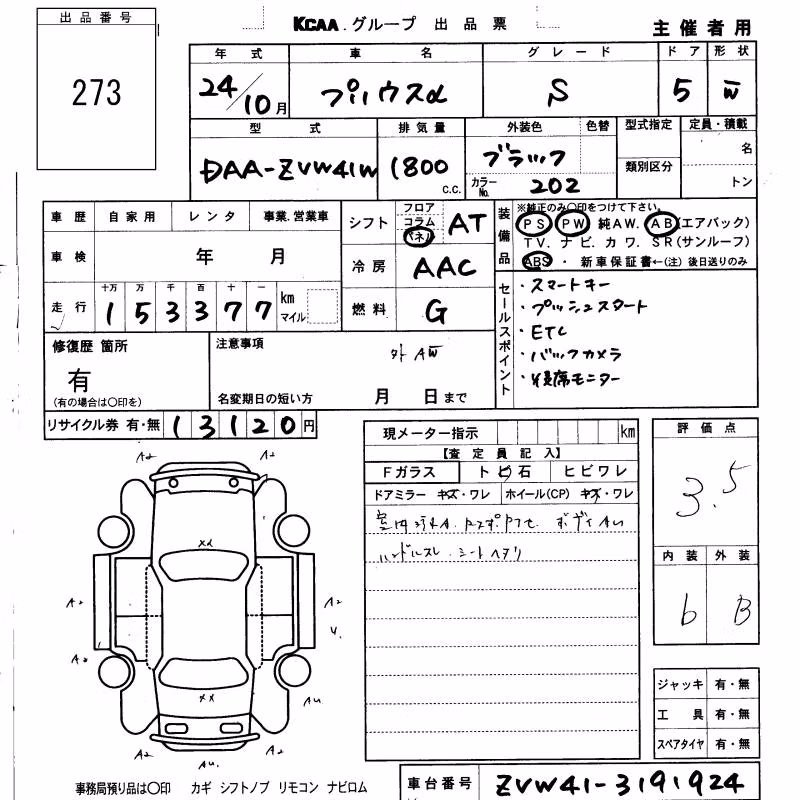 KCAA.グループ 出品票
主催者用
出品番号
273
年式 車名 グレード ドア 形状
24/10月 プリウスα S 5 W
型式 排気量 外装色 色替 型式指定 定員・積載
DAA-ZVW41W 1800 C.C. ブラック 名
類別区分
カラーNo. 202 トン
車歴 自家用 レンタ 事業.営業車
車検 年 月
十万 万 千 百 十 一
走行 153377 km マイル
シフト フロア コラム パネル AT
冷房 AAC
燃料 G
装備品 ※純正のみ〇印をつけて下さい。
PS PW 純AW. AB(エアバック)
TV. ナビ. カワ. SR(サンルーフ)
ABS ・ 新車保証書←(注) 後日送りのみ
セールスポイント
・スマートキー
・プッシュスタート
・ETC
・バックカメラ
・後席モニター
修復歴 箇所
有
(有の場合は〇印を)
注意事項
外AW
名変期日の短い方 月 日まで
リサイクル券 有・無 13120円
現メーター指示 km
【査定員記入】
Fガラス トビ石 ヒビワレ
ドアミラー キズ・ワレ ホイール(CP) キズ・ワレ
ボディAU
ハンドルスレ. シートヘタリ
評価点
3.5
内装 外装
b B
ジャッキ 有・無
工具 有・無
スペアタイヤ 有・無
A2 A2
XX
A2 A2
A2
XX
AU
A2 A2
AU.
事務局預り品は〇印 カギ シフトノブ リモコン ナビロム
車台番号 ZVW41-3191924